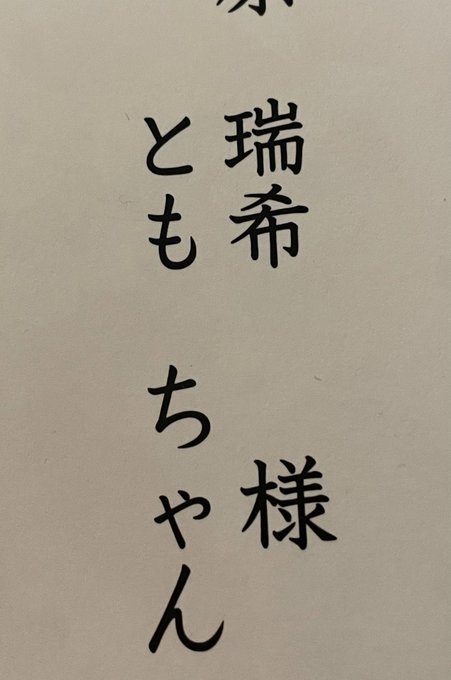 瑞希 様
とも ちゃん